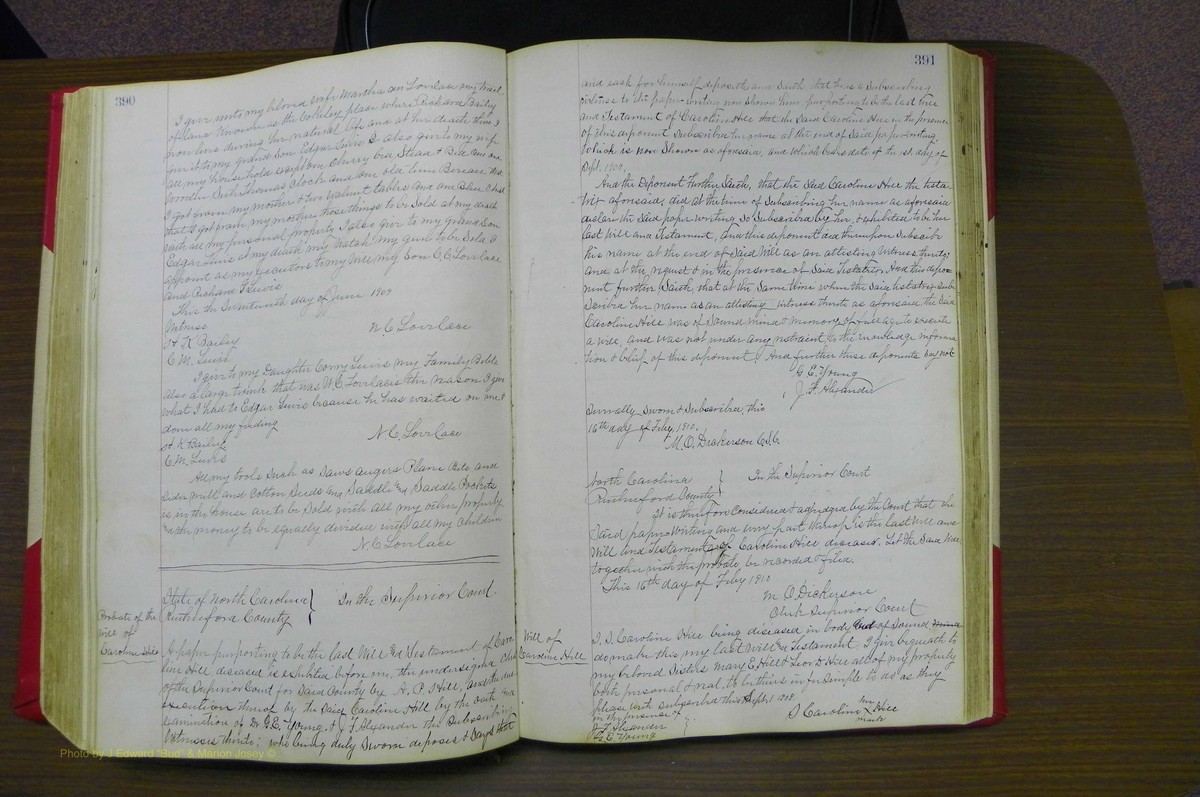 390
I give unto my beloved wife Martha an Lovelace my track
of land known as the Cokeley place where Richard Bailey
now lives during her natural life and at her death then I
give it to my grand Son Edgar Lewis I also give to my wife
all my household except one cherry bed Stead & Bed
Seth Thomas Clock and one old time Bureau that
I got from my mother & two walnut tables and one Blue Chest
that I got from my mother those things to be Sold at my death
with all my personal property I also give to my grand Son
Edgar Lewis at my death my watch my gun to be Sold I
appoint as my executors to my will my Son C.C. Lovelace
and Richard Lewis
This the Seventeenth day of June 1909
Witness
N C Lovelace
A K Bailey
C M. Lewis
I give to my Daughter Corry Lewis my Family Bible
also a large trunk that was W C Lovelaces the reason I give
what I had to Edgar Lewis because he has waited on me &
done all my feeding
N C Lovelace
A K Bailey
C M. Lewis
All my tools Such as Saws augers Plane Bits and
Cider mill and Cotton Seeds and Saddle and Saddle Pockets
is in the house are to be Sold with all my other property
the money to be equally devided with all my children
N C Lovelace
Probate of the
Will of
Caroline Hill
State of North Carolina
Rutherford County
In the Superior Court.
A paper purporting to be the last Will and Testament of Caro
line Hill diseased is exhibited before me, the undersigned Clerk
of the Superior Court for Said County by A. P. Hill, and the due
execution thereof by the Said Caroline Hill by the oath and
examination of Dr G.E. Young, & J. F. Alexander the Subscribing
Witnesses thereto; who being duly Sworn deposes & Says that
391
and each for himself deposeth and Saith that he is a Subscribing
witness to the paper-writing now Shown him, purporting to be the last Will
and Testament of Caroline Hill that the Said Caroline Hill in the presence
of this deponent Subscribed her name at the end of Said paper writing
which is now Shown as aforesaid, and which bears date of the 1st. day of
Sept. 1908.
And the Deponent Further Saith, that the Said Caroline Hill the testa-
trix aforesaid, did at the time of Subscribing her name as aforesaid
declare the Said paper writing So Subscribed by her, & exhibited to be her
last Will and Testament, and this deponent did thereupon Subscribe
his name at the end of Said Will as an attesting witness thereto;
and at the request & in the presence of Said Testator. And this depo-
nent further Saith, that at the Same time when the Said testator Sub-
scribed her name as an attesting witness thereto as aforesaid, the Said
Caroline Hill was of Sound mind & memory, of full age to execute
a will, and was not under any restraint, to the knowledge informa-
tion & belief of this deponent, And further these deponents Say not
G. E. Young
J. F. Alexander
Severally Sworn & Subscribed, this
16th day of Feby, 1910.
M.O. Dickerson C.S.C.
North Carolina
Rutherford County
In the Superior Court
It is therefore Considered & adjudged by the Court that the
Said paper writing and every part thereof is the last Will and
Will and Testament of Caroline Hill diseased. Let the Same
together with the probate, be recorded & filed.
This 16th day of Feby 1910
M O Dickerson
Clerk Superior Court
Will of
Caroline Hill
I. S. Caroline Hill being diseased in body but of Sound mind
do make this my last will and Testament, I give bequeath to
my beloved Sisters Mary E Hill & Hill all of my property
both personal & real, to be theirs in fee Simple to do as they
please with Subscribed this Sept. 1 1908
in the presence of
J F Alexander
G E Young
S Caroline her Hill
mark
Photo by J Edward "Bud" & Marion Josey ©